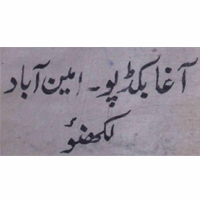 آغا بکڈپو۔ امین آباد
لکھنؤ